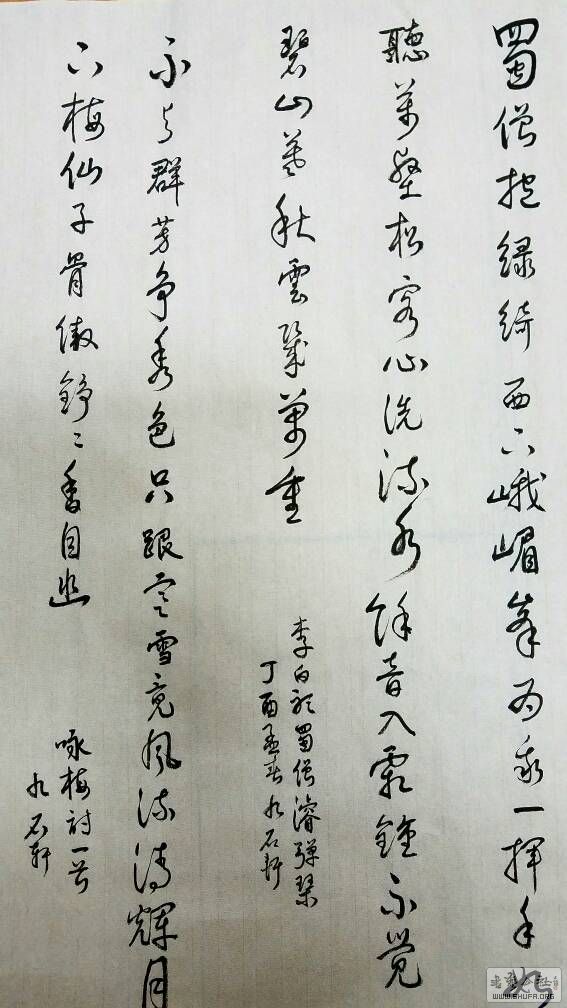 蜀僧抱绿绮西下峨嵋峯为我一揮手
聽萬壑松客心洗流水馀音入霜鐘不觉
碧山暮秋雲幾萬重
李白聽蜀僧濬弹琴
丁酉孟春九石轩
不与群芳争秀色只跟寒雪竞风流清輝月
下梅仙子骨傲铮々香自幽
咏梅詩一首
九石轩
WWW.SHUFA.ORG